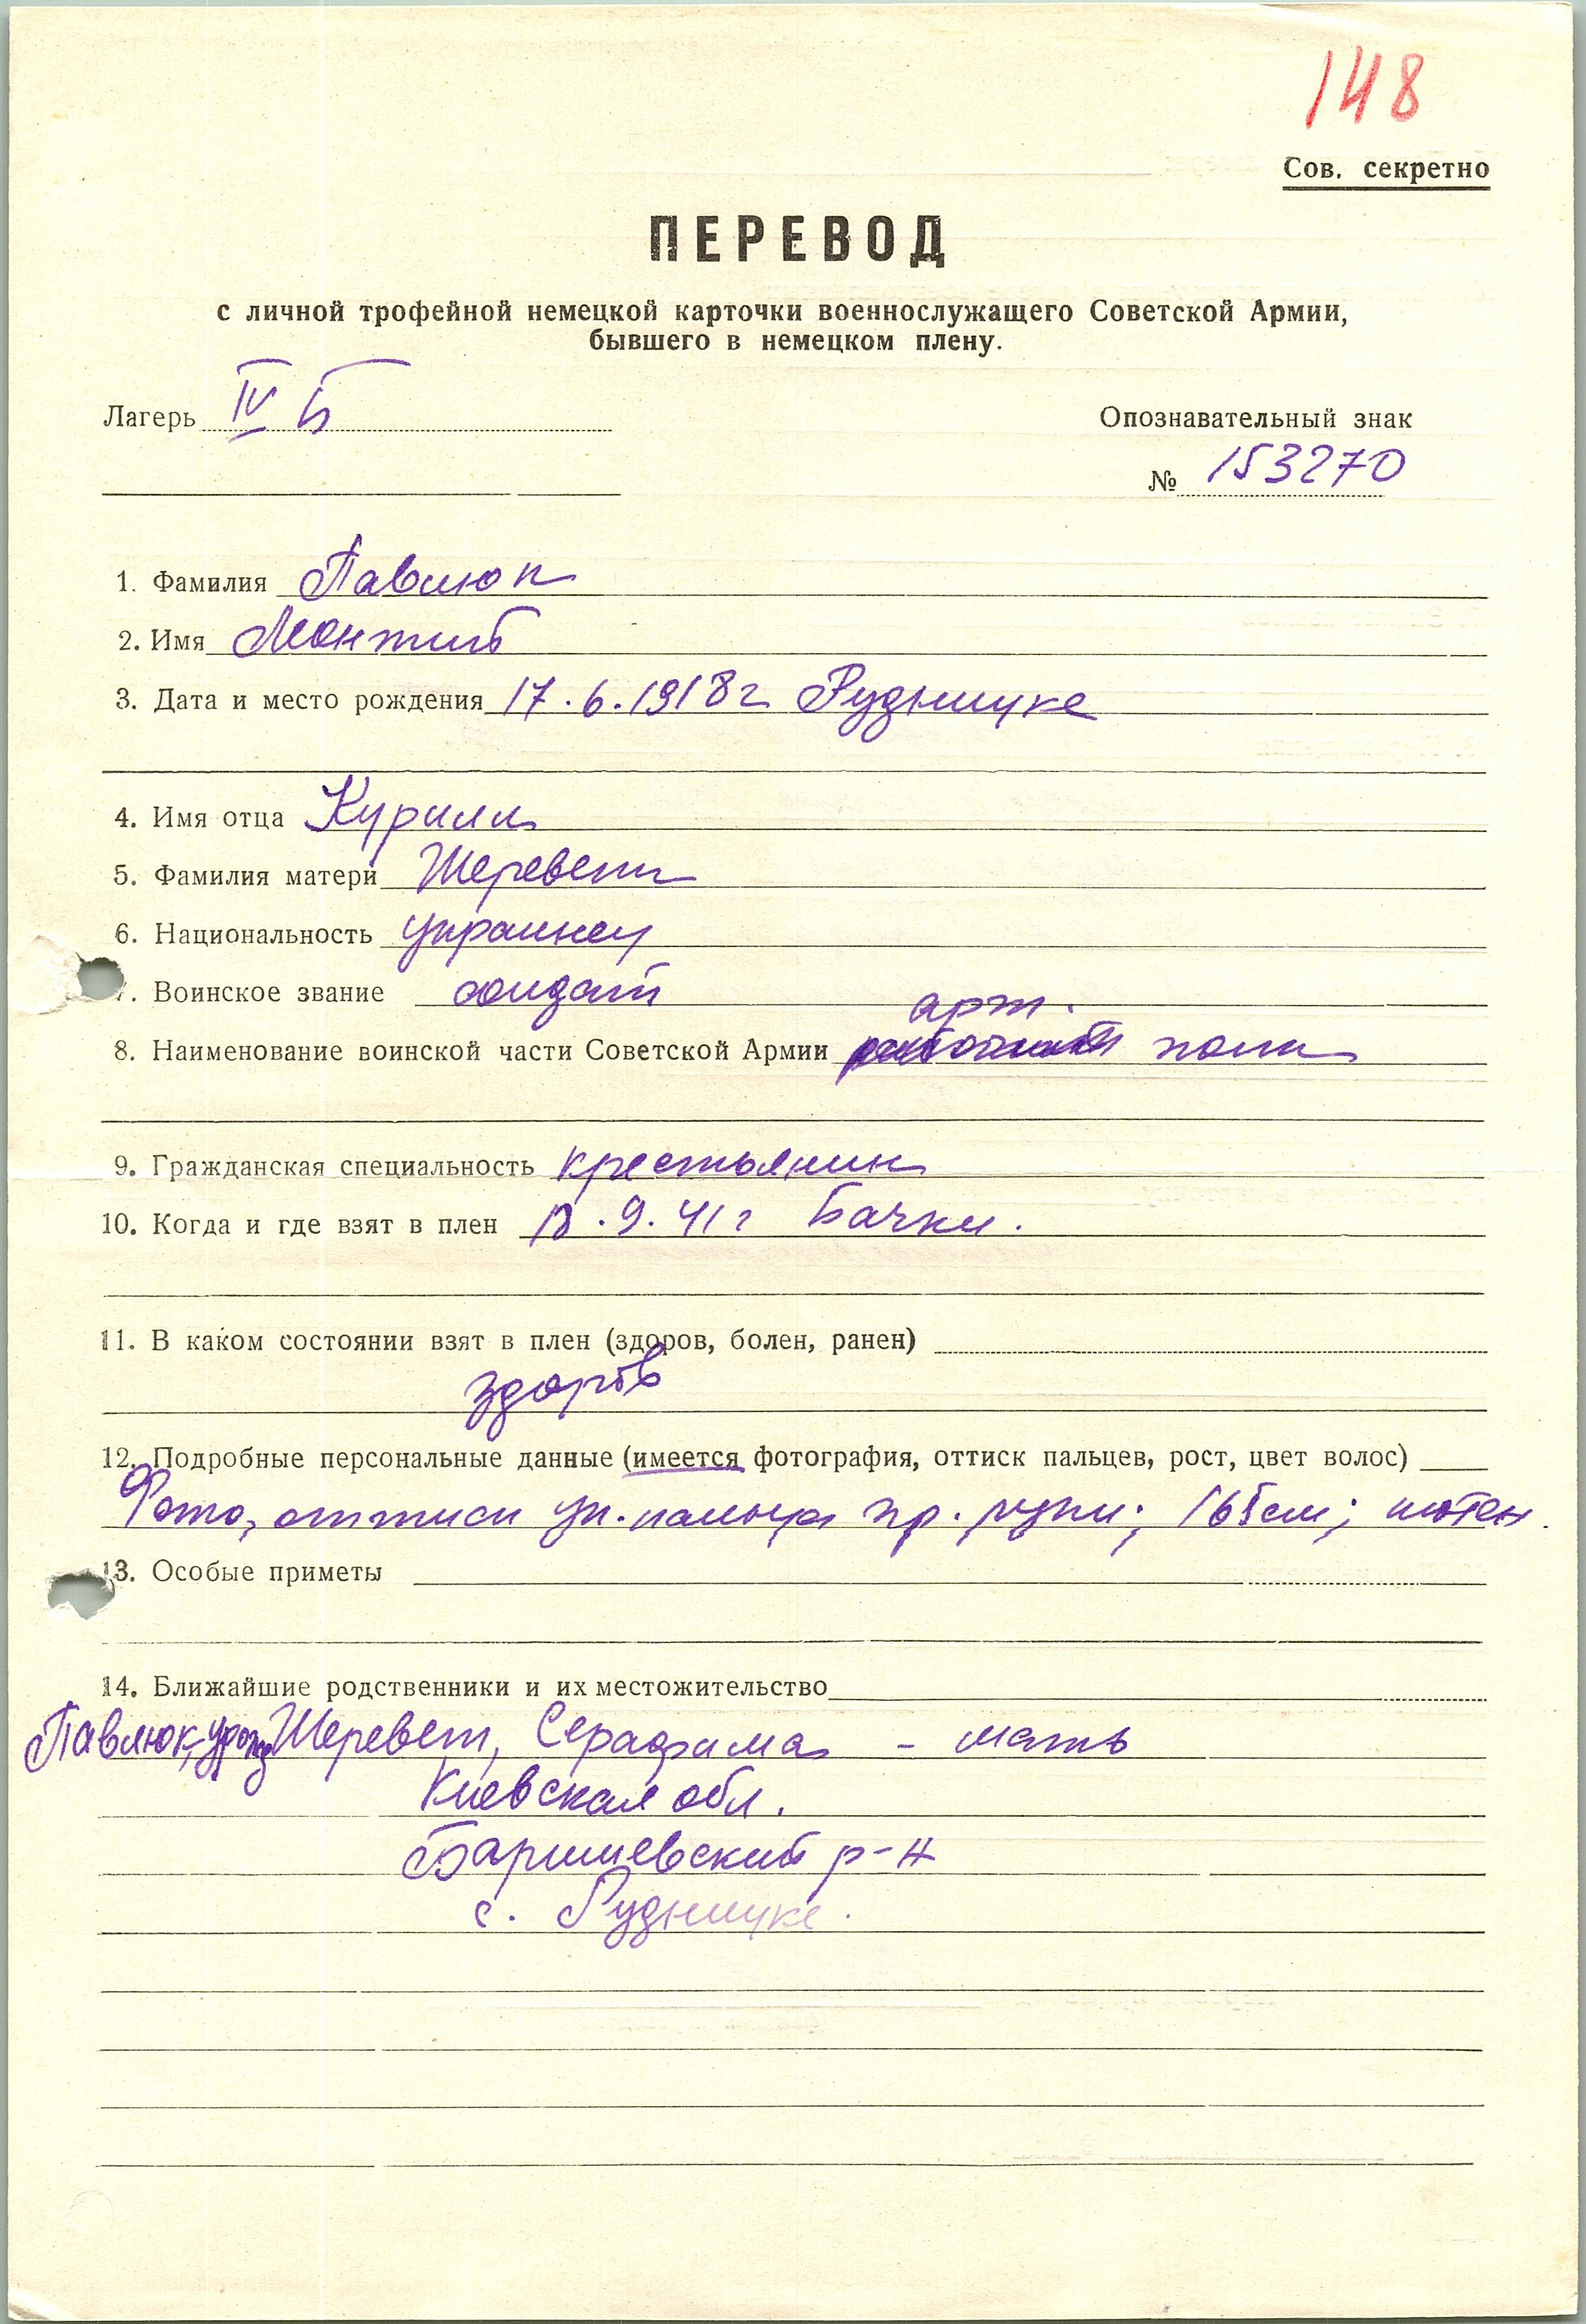 148
Сов. секретно
ПЕРЕВОД
с личной трофейной немецкой карточки военнослужащего Советской Армии,
бывшего в немецком плену.
Лагерь IV Б
Опознавательный знак
№ 153270
1. Фамилия Павлюк
2. Имя
3. Дата и место рождения 17.6.1918г Рудницке
4. Имя отца Курилл
5. Фамилия матери Шеревет
6. Национальность украинец
7. Воинское звание солдат
арт.
8. Наименование воинской части Советской Армии полк
9. Гражданская специальность крестьянин
10. Когда и где взят в плен 18.9.41г Бачки.
11. В каком состоянии взят в плен (здоров, болен, ранен)
здоров
12. Подробные персональные данные (имеется фотография, оттиск пальцев, рост, цвет волос)
Фото, оттиск ук. пальца пр. руки; 165см;
13. Особые приметы
14. Ближайшие родственники и их местожительство
Павлюк, урожд Шеревет, Серафима - мать
Киевская обл.
Баришевский р-н
с. Рудницке.